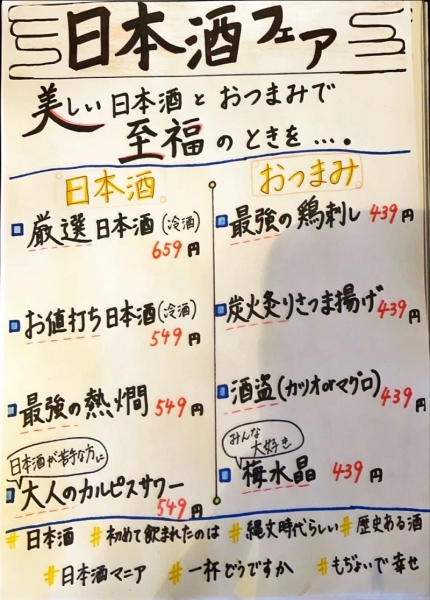 日本酒フェア
美しい日本酒とおつまみで
至福のときを….
日本酒
厳選日本酒(冷酒)
659円
お値打ち日本酒(冷酒)
549円
最強の熱燗 549円
日本酒が苦手な方に
大人のカルピスサワー
549円
おつまみ
最強の鶏刺し 439円
炭火炙りさつま揚げ 439円
酒盗(カツオorマグロ) 439円
みんな大好き
梅水晶 439円
#日本酒 #初めて飲まれたのは #縄文時代らしい #歴史ある酒
#日本酒マニア #一杯どうですか #もぢょいで幸せ